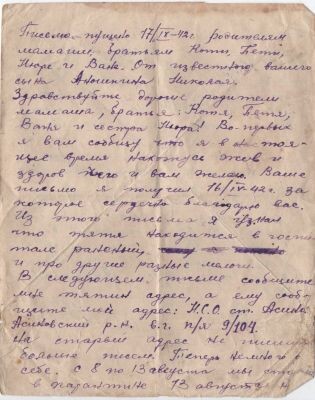 Письмо пущено 17/IX-42г. родителям
мамаше, братьям Коти, Пети,
Нюре и Ване. От известного вашего
сына Аношкина Николая.
Здравствуйте дорогие родители
мамаша, братья: Котя, Петя,
Ваня и сестра Нюра! Во-первых
я вам сообщу что я в настоя-
щее время нахожусь жив и
здоров чего и вам желаю. Ваше
письмо я получил 16/IX-42г. за
которое сердечно благодарю вас.
Из этого письма я узнал
что тятя находится в госпи-
тале раненый
и про другие разные мелочи.
В следующем письме сообщите
мне тятин адрес, а ему сооб-
щите мой адрес: Н.С.О. ст. Асино
Асиновский р-н. в.г. п/я 9/104.
На старый адрес не пишите
больше писем. Теперь немного о
себе. С 8 по 13 августа мы
в карантине 13 августа